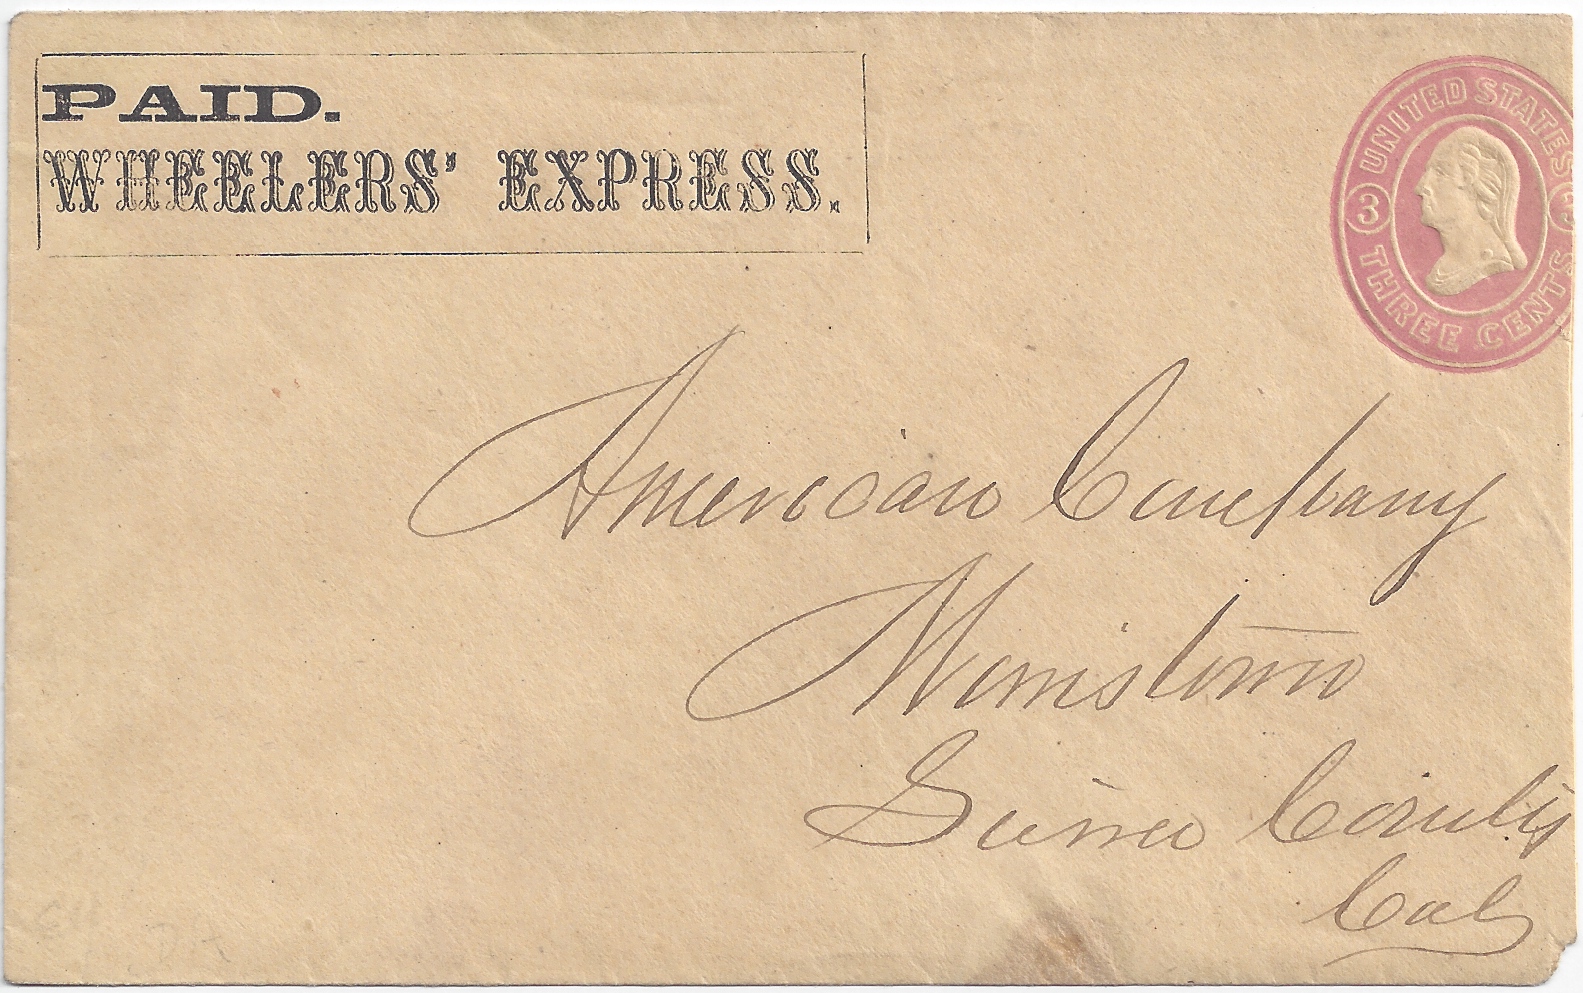 PAID.
WHEELERS' EXPRESS.
UNITED STATES
3
THREE CENTS
American Company
Morristown
Sierra County
Cal